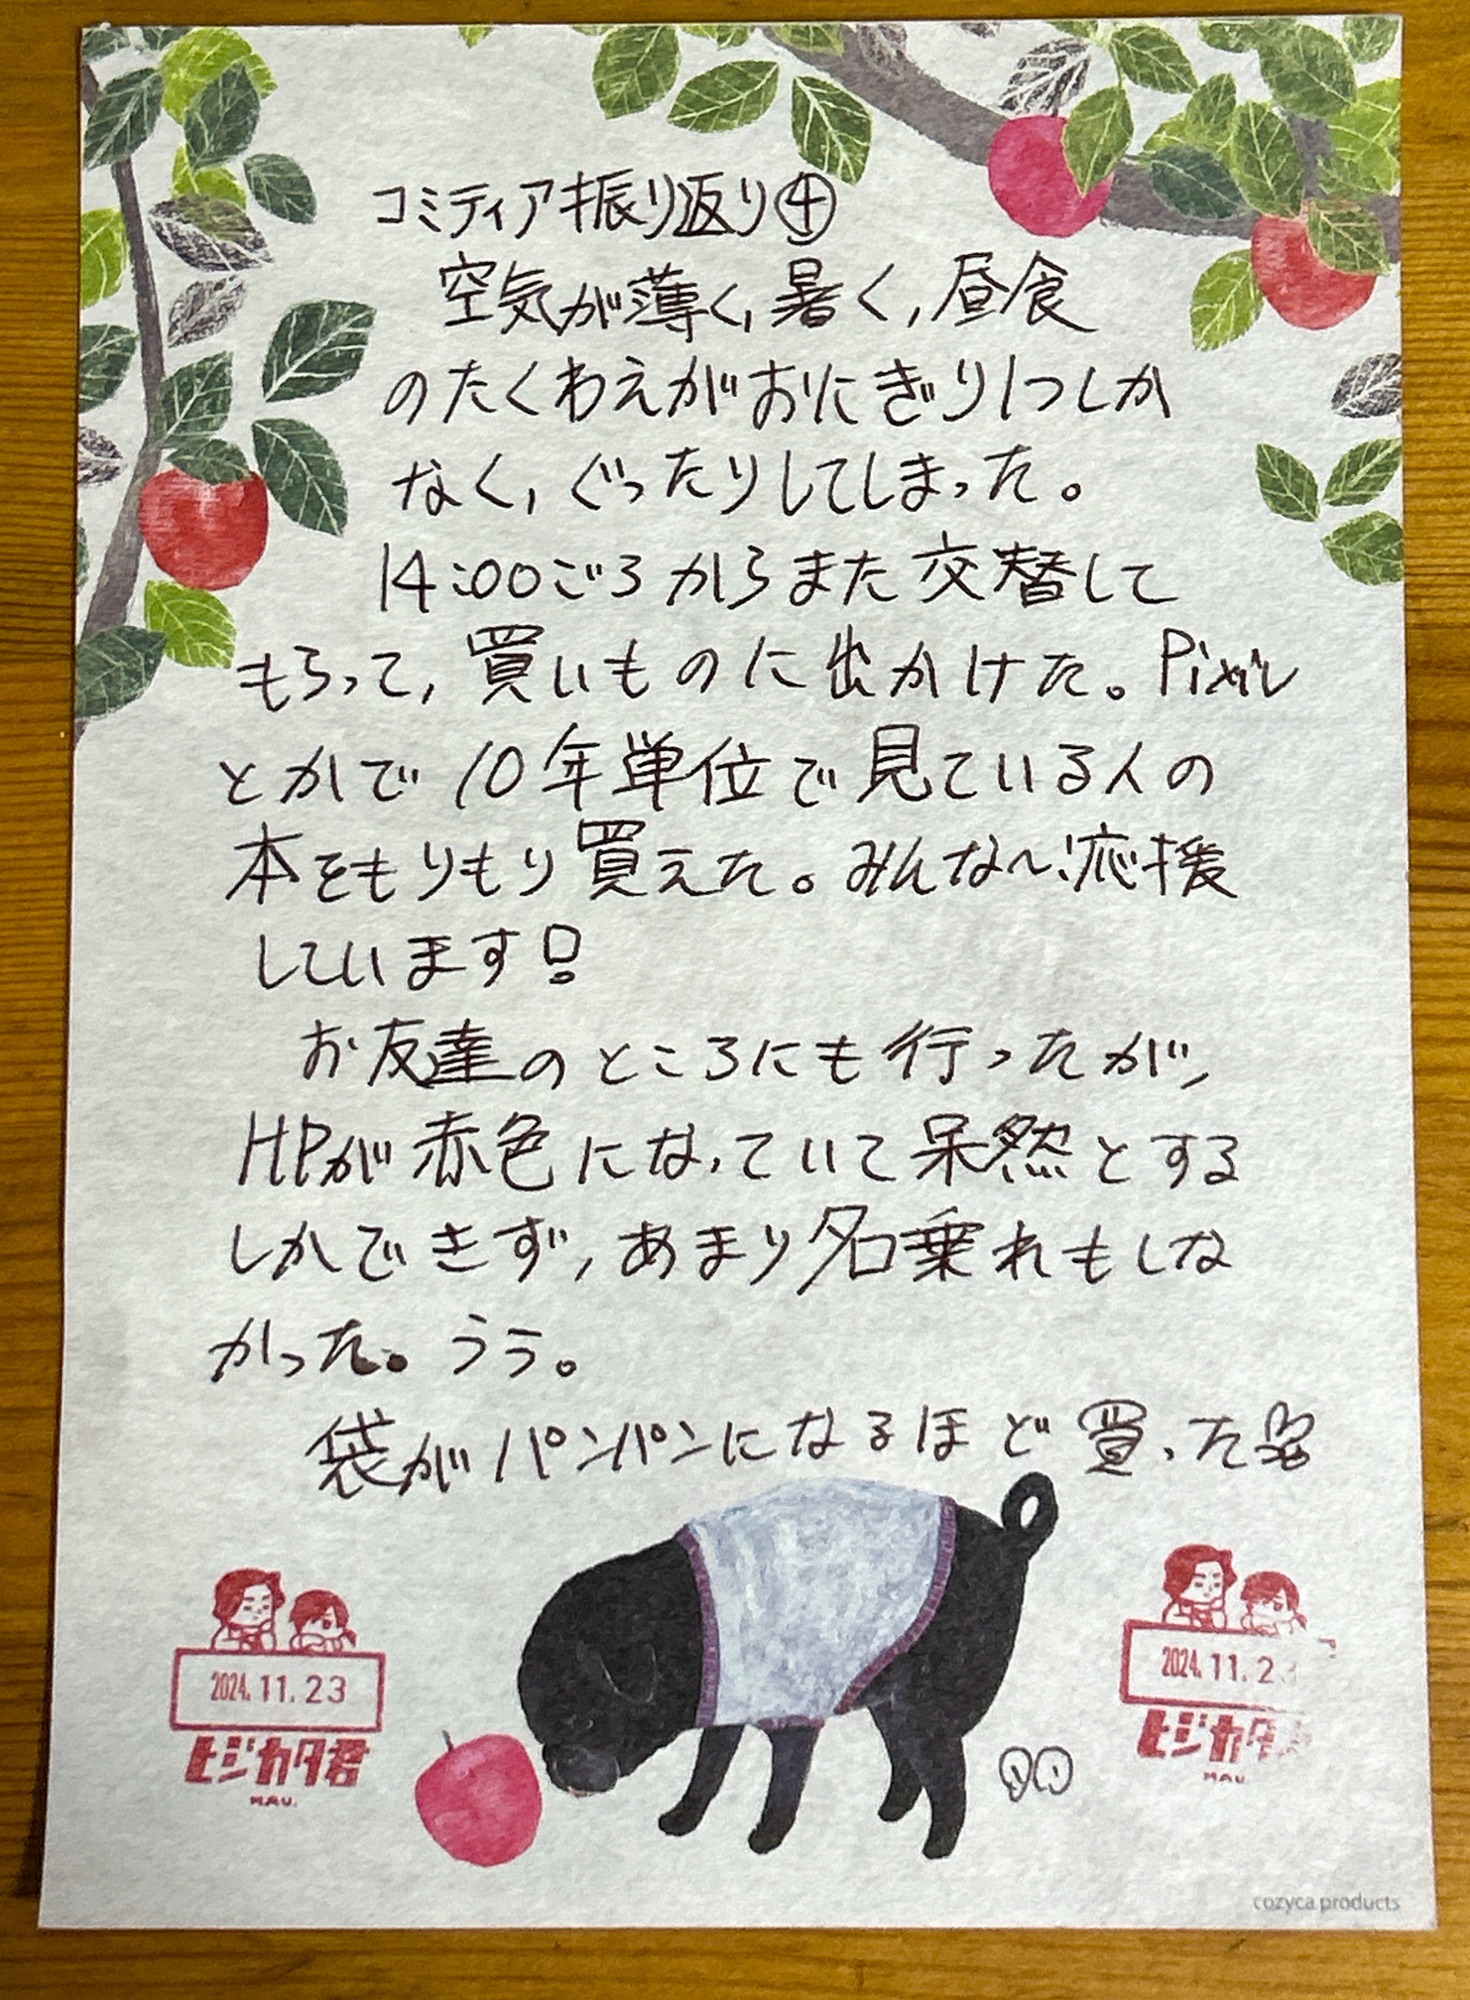 コミティア振り返り④
空気が薄く,暑く,昼食
のたくわえがおにぎり1つしか
なく,ぐったりしてしまった。
14:00ごろからまた交替して
もらって,買いものに出かけた。Pixiv
とかで10年単位で見ている人の
本をもりもり買えた。みんな〜!応援
しています!
お友達のところにも行ったが,
HPが赤色になっていて呆然とする
しかできず,あまり名乗れもしな
かった。うう。
袋がパンパンになるほど買った
2024.11.23
ヒジカタ君
MAU.
2024.11.2
ヒジカタ
MAU.
cozyca products